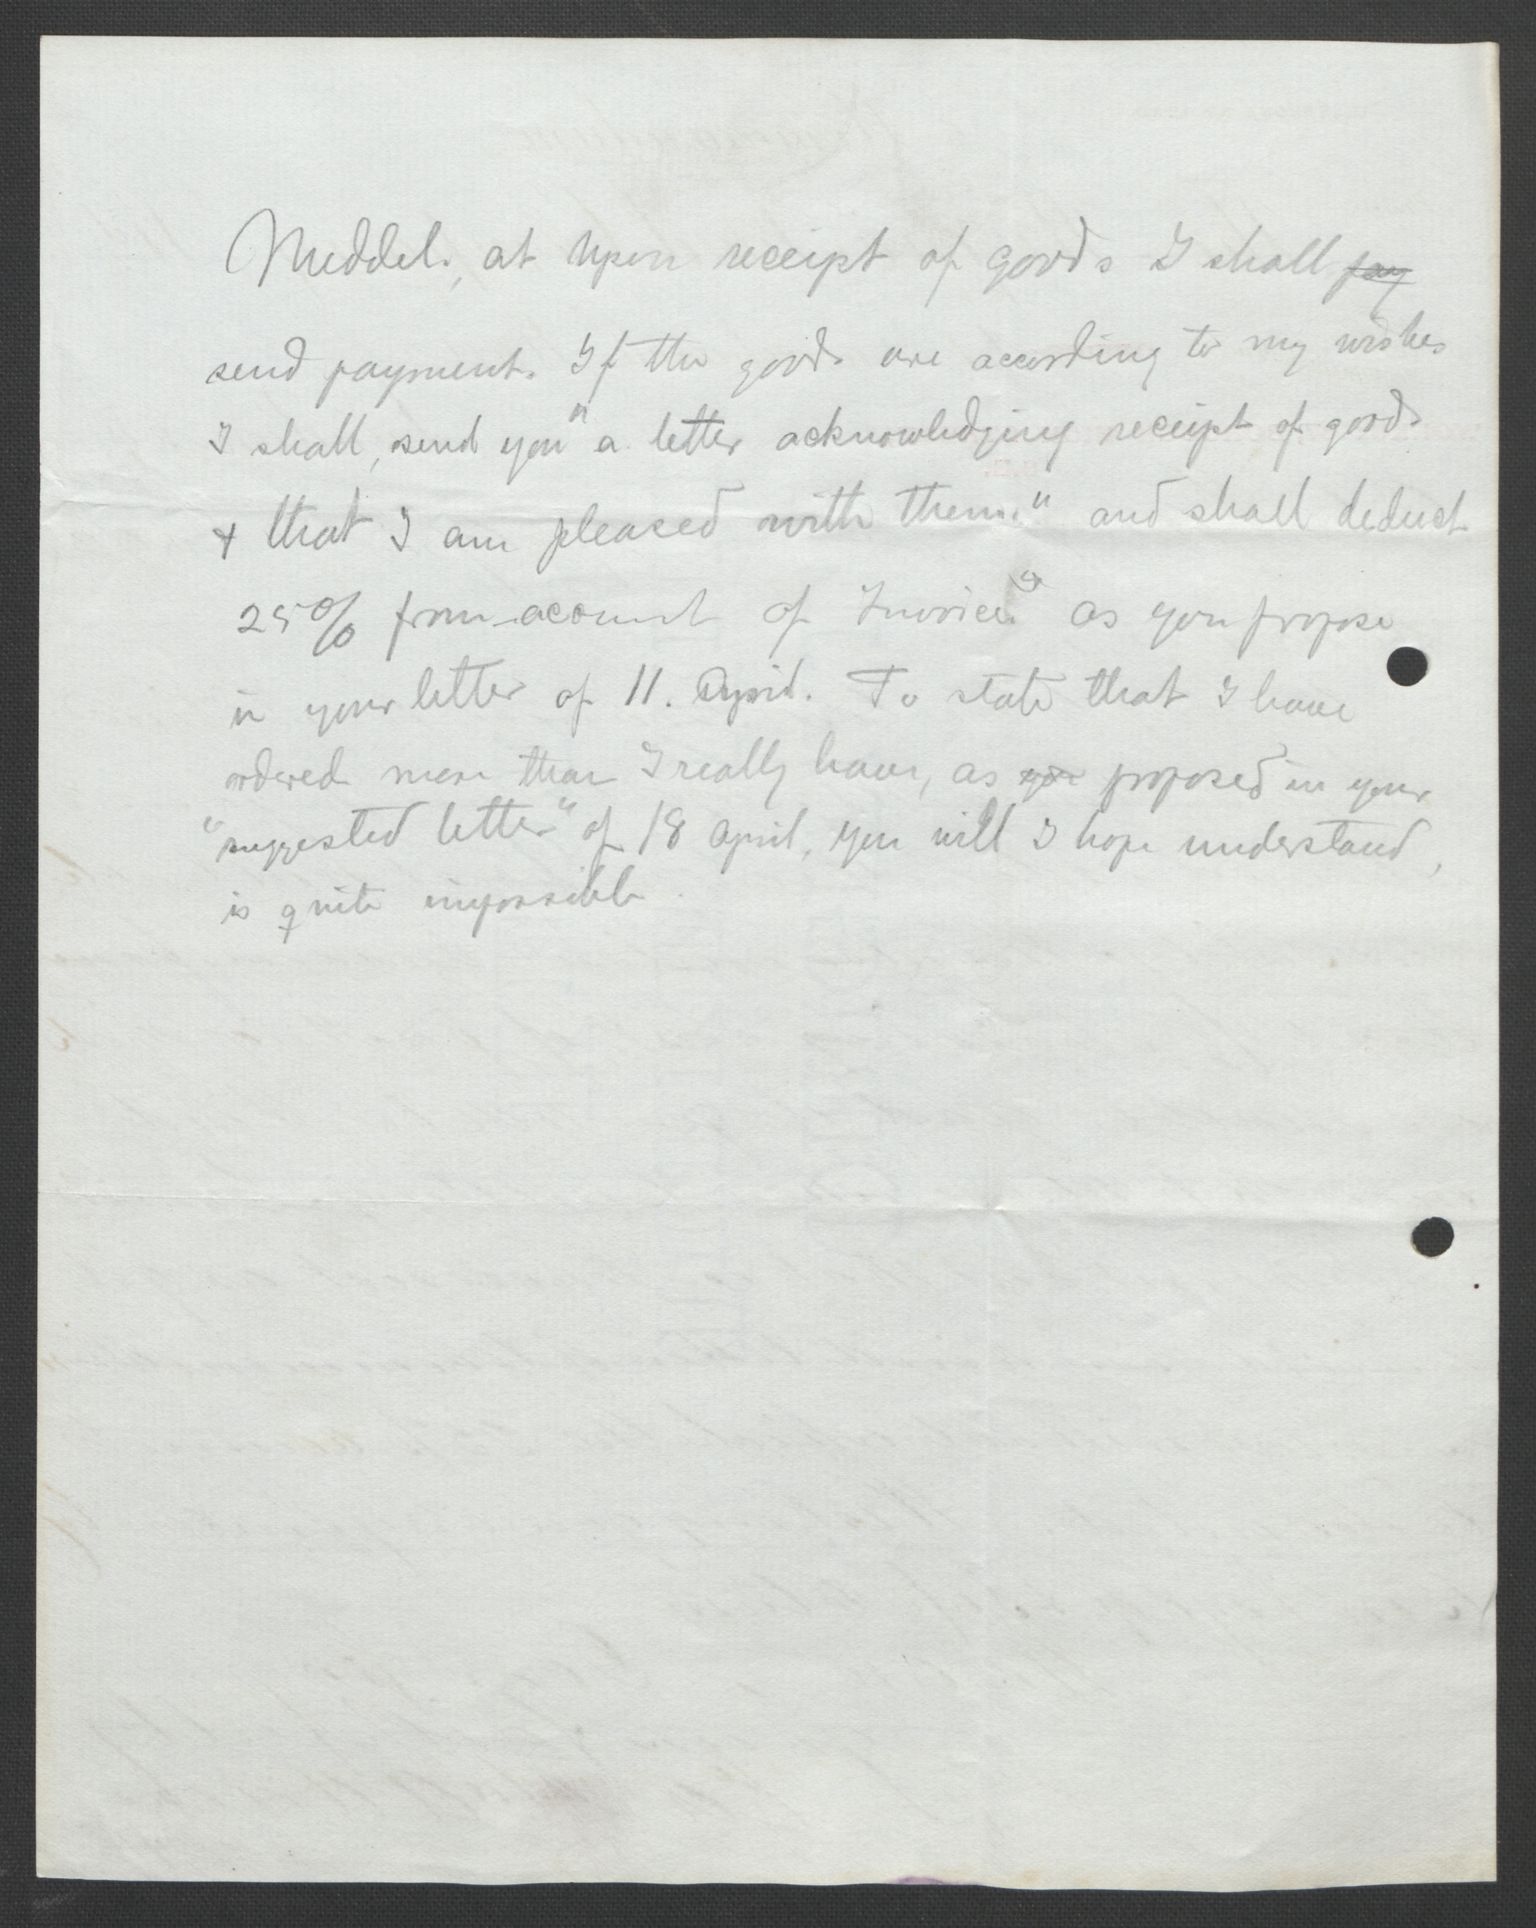 Meddel., at upon receipt of goods I shall pay
send payment. If the goods are according to my wishes
I shall, send you "a letter acknowledging receipt of goods
+ that I am pleased with them." and shall deduct
25% from acount of Invoice" as you propose
in your letter of 11. April. To state that I have
ordered more than I really have, as you proposed in your
"suggested letter" of 18 april, you will I hope understand,
is quite impossible.